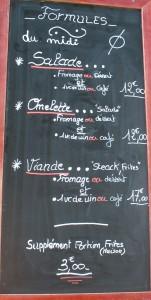 _ FORMULES _
du midi
* Salade...
• fromage ou dessert
et
• 1 v. de vin ou café 12€,00
* Omelette... "Salade"
• Fromage ou dessert
et
• 1 v. de vin ou café 12€,00
* Viande... "Steack Frites"
• fromage ou dessert
et
• 1 v. de vin ou café 17€,00
Supplément Portion Frites
(Maison)
3€,00